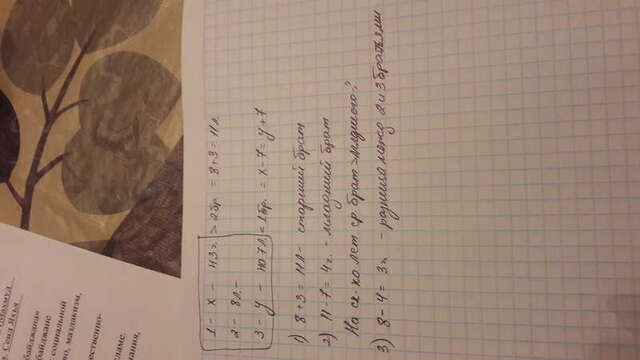 1 - x - на 3 г. > 2 бр. = 8+3 = 11 л.
2 - 8 л. -
3 - y - на 7 л. < 1 бр. = x - 7 = y + 7
1) 8 + 3 = 11 л - старший брат
2) 11 - 7 = 4 г. - младший брат
На ск-ко лет ср. брат > младшего?
3) 8 - 4 = 3 г. - разница между 2 и 3 братьями
байджана»
байджане
социальной
маздакизм,